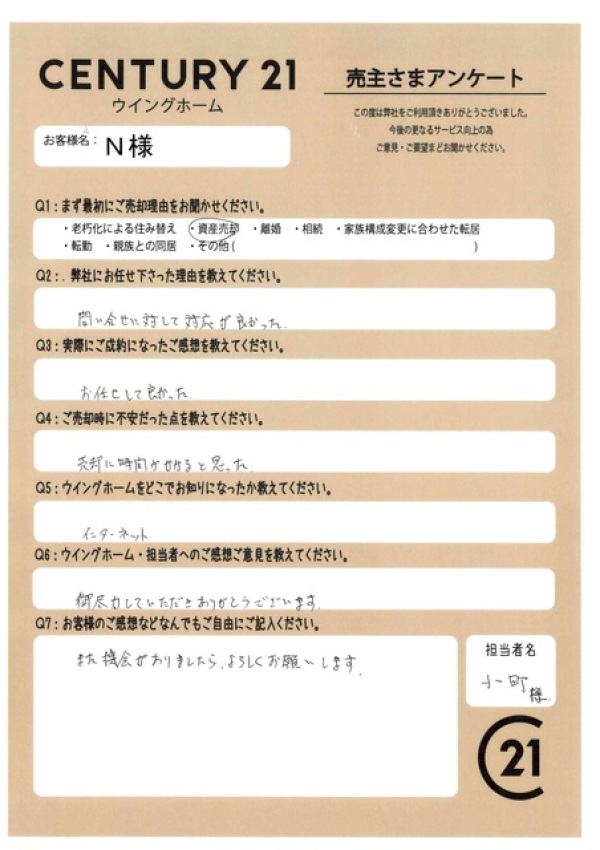 CENTURY 21
ウイングホーム
売主さまアンケート
この度は弊社をご利用頂きありがとうございました。
今後の更なるサービス向上の為
ご意見・ご要望までお聞かせください。
お客様名： N様
Q1：まず最初にご売却理由をお聞かせください。
・老朽化による住み替え ・資産売却 ・離婚 ・相続 ・家族構成変更に合わせた転居
・転勤 ・親族との同居 ・その他( )
Q2：. 弊社にお任せ下さった理由を教えてください。
問い合せに対して対応が良かった.
Q3：実際にご成約になったご感想を教えてください。
お任せして良かった.
Q4：ご売却時に不安だった点を教えてください。
売却に時間がかかると思った.
Q5：ウイングホームをどこでお知りになったか教えてください。
インターネット
Q6：ウイングホーム・担当者へのご感想ご意見を教えてください。
御尽力していただきありがとうございます.
Q7：お客様のご感想などなんでもご自由にご記入ください。
また機会がありましたら、よろしくお願いします.
担当者名
小町様.
C21